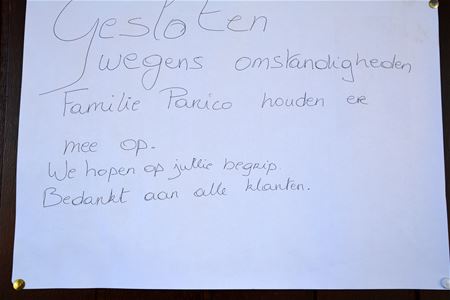 Gesloten
wegens omstandigheden
Familie Panico houden er
mee op.
We hopen op jullie begrip.
Bedankt aan alle klanten.